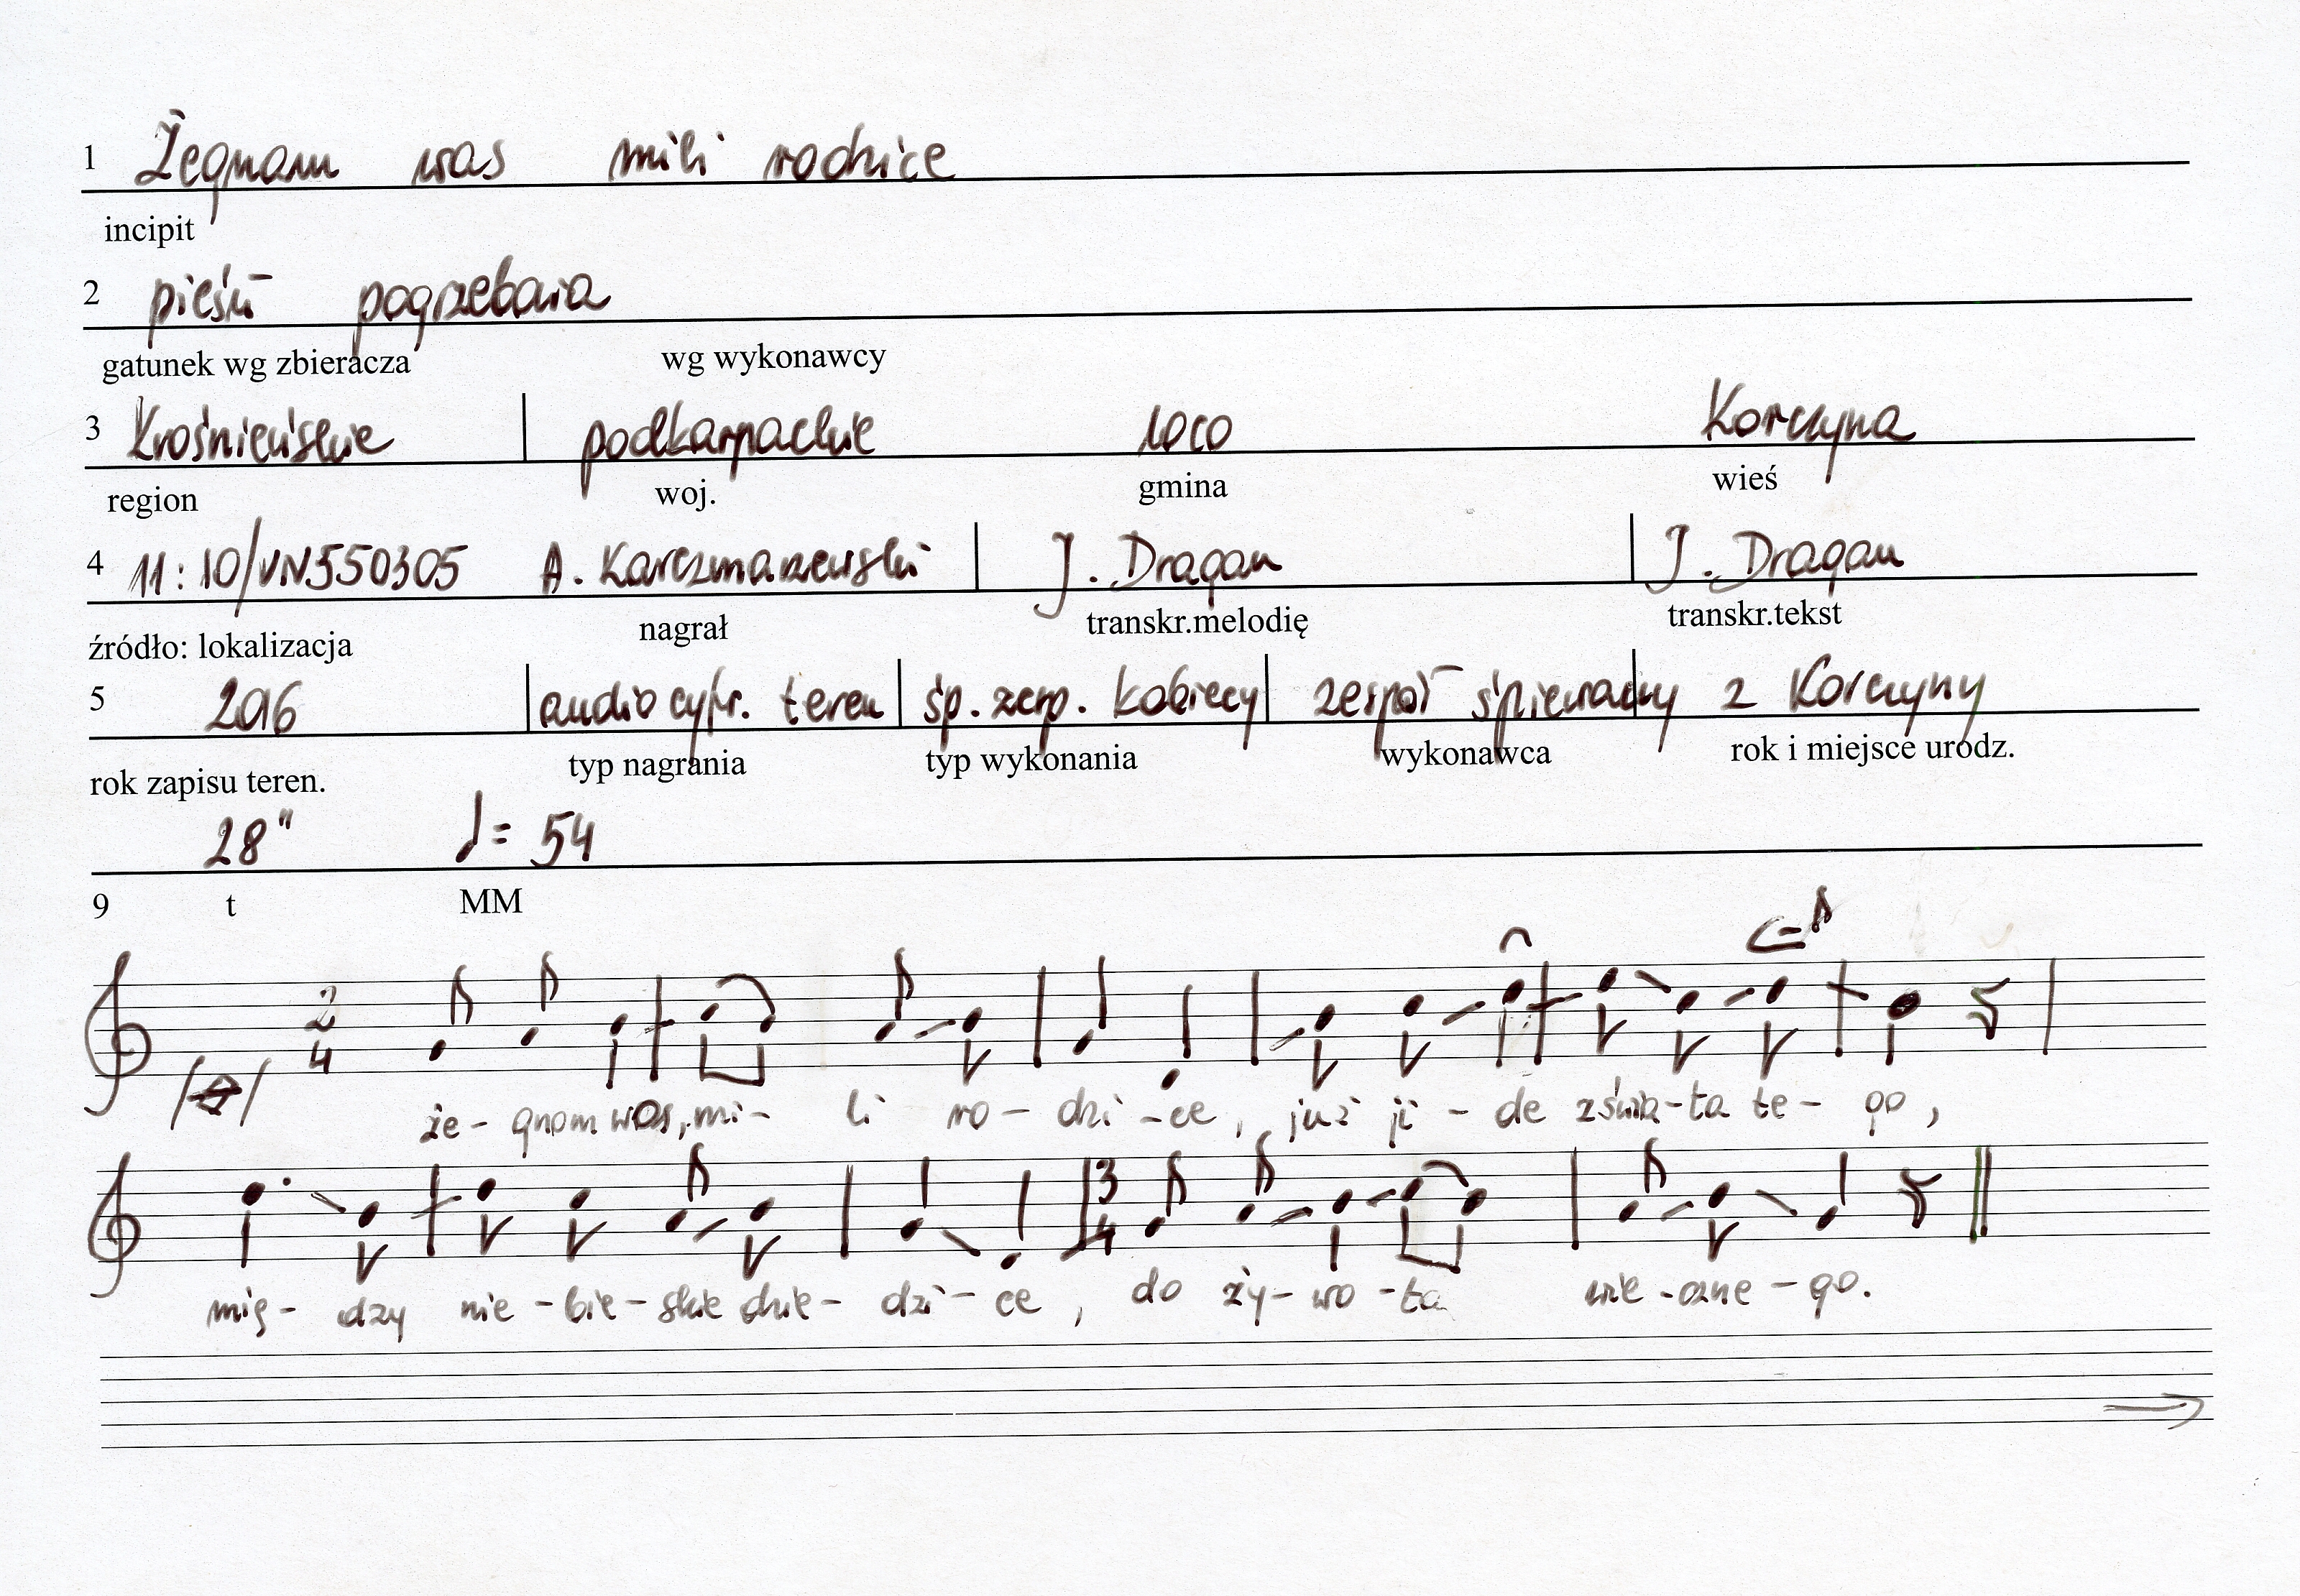 1 Żegnam was mili rodzice
incipit
2 pieśń pogrzebowa
gatunek wg zbieracza wg wykonawcy
3 Krośnieńskie podkarpackie loco Korczyna
region woj. gmina wieś
4 11:10/VN550305 A. Karczmarzewski J. Dragan J. Dragan
źródło: lokalizacja nagrał transkr.melodię transkr.tekst
5 2016 audio cyfr. teren śp. zesp. kobiecy zespół śpiewaczy z Korczyny
rok zapisu teren. typ nagrania typ wykonania wykonawca rok i miejsce urodz.
28" ♩= 54
9 t MM
2
4
że- gnom was, mi- li ro- dzi -ce, już ji - de zświa-ta te- go,
3
4
mię- dzy nie -bie- skie dzie- dzi- ce, do ży- wo -ta wie -czne - go.